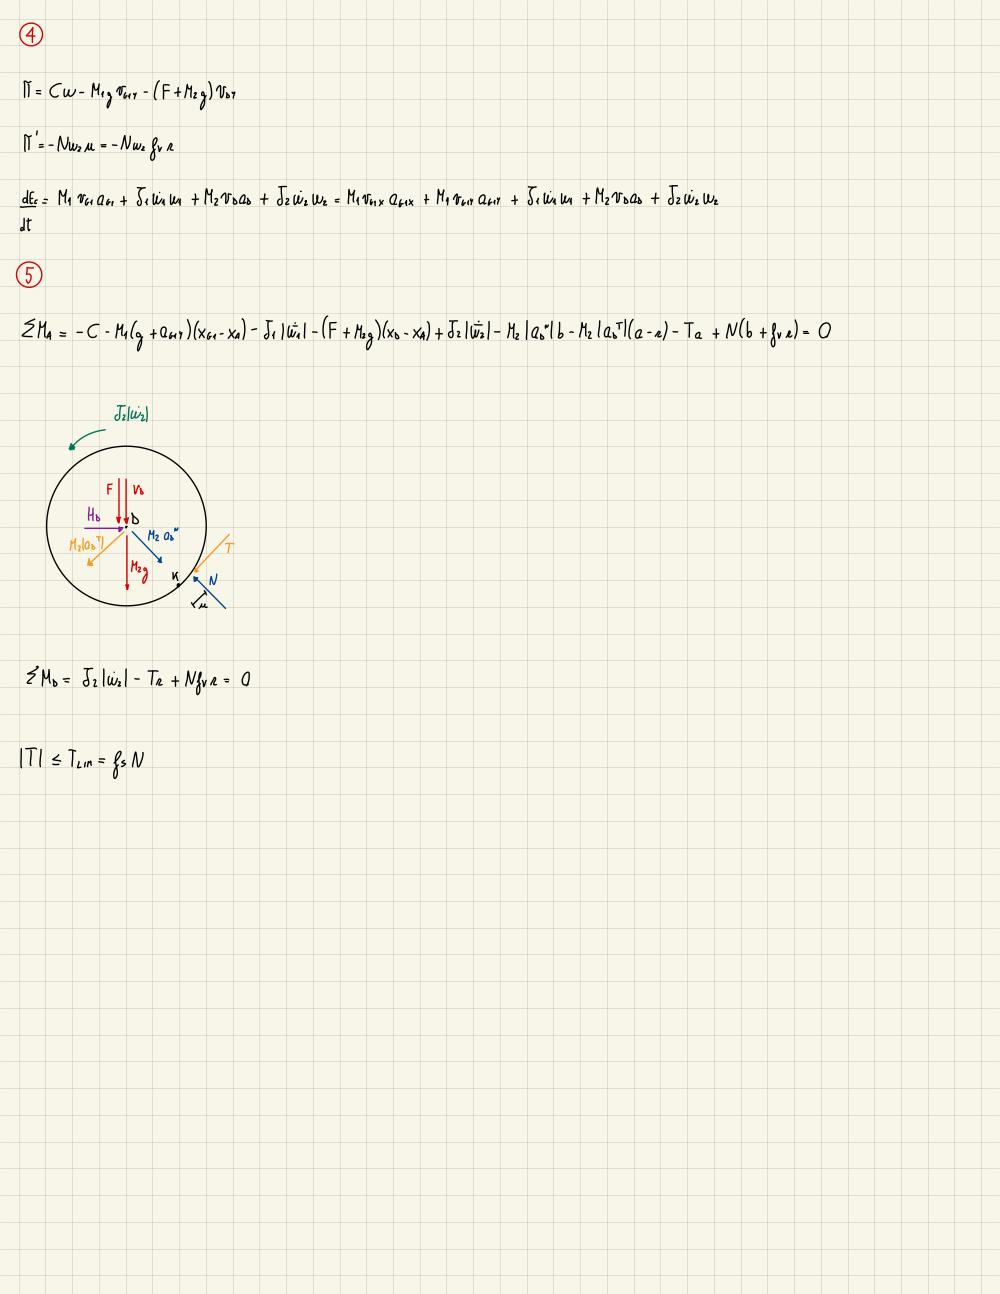 4
Π = Cω - M₁g v_G1Y - (F + M₂g) v_DY
Π' = -Nω₂u = -Nω₂ f_v r
dE_c/dt = M₁ v_G1 a_G1 + J₁ ω̇₁ ω₁ + M₂ v_D a_D + J₂ ω̇₂ ω₂ = M₁ v_G1X a_G1X + M₁ v_G1Y a_G1Y + J₁ ω̇₁ ω₁ + M₂ v_D a_D + J₂ ω̇₂ ω₂
5
ΣM_A = -C - M₁(g + a_G1Y)(x_G1 - x_A) - J₁|ω̇₁| - (F + M₂g)(x_D - x_A) + J₂|ω̇₂| - M₂|a_D^N|b - M₂|a_D^T|(a - r) - Ta + N(b + f_v r) = 0
J₂|ω̇₂|
F V_D
H_D D
M₂|a_D^T| M₂ a_D^N
T
M₂g K N
u
ΣM_D = J₂|ω̇₂| - Tr + N f_v r = 0
|T| ≤ T_LIM = f_s N